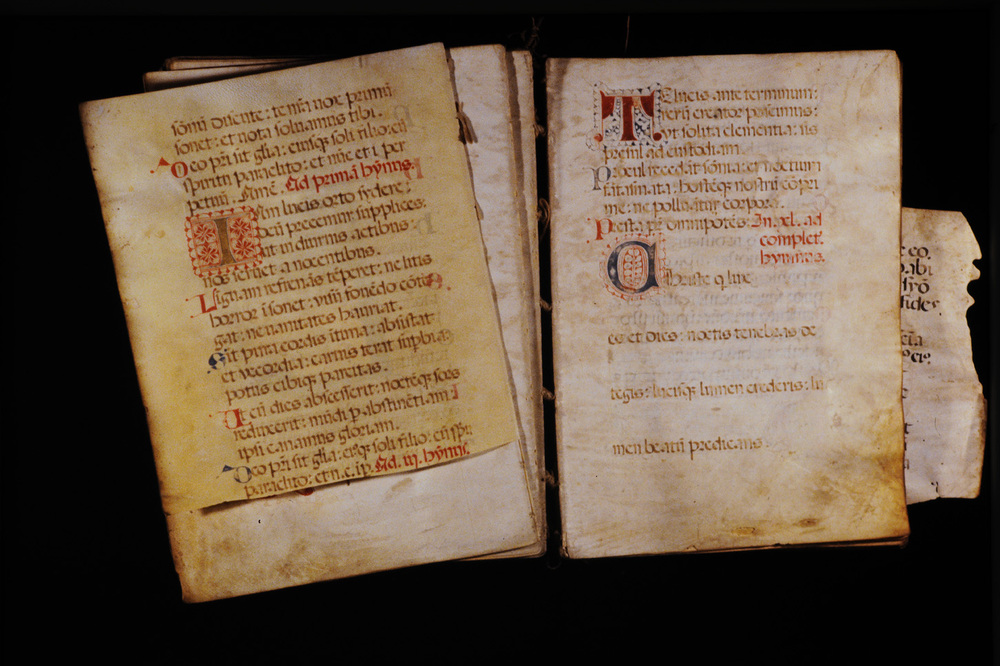 sōnū discute: te n̄sa uox primū
sonet: et nota soluamus tibi.
Deo p̄ri sit gl̄ia: eiusq; soli filio: cū
spiritu paraclito: et nūc et ī per
petuū. Amē. Ad primā hȳnus.
Iam lucis orto sydere:
Deū precemur supplices:
ut in diurnis actibus
nos seruet a nocentibus.
Linguam refrenās tēperet: ne litis
horror īsonet: uisū fouēdo cōte
gat: ne uanitates hauriat.
Sint pura cordis ītima: absistat
et uecordia: carnis terat supbiā
potus cibiq; parcitas.
Ut cū dies abscesserit: noctēq; sors
reduxerit: mūdi p abstinētiam
ipsi canamus gloriam.
Deo p̄ri sit gl̄ia: eiusq; soli filio: cū sp̄u
paraclito: et n. c. ip. Ad. iij. hȳnus.
TE lucis ante terminum:
rerū creator poscimus:
ut solita elementia: sis
presul ad custodiam.
Procul recedāt sōnia: et noctium
fātasmata: hosteq; nostrū cōpri
me: ne polluātur corpora.
Presta p̄r omnipotēs: In .xl. ad
complet.
hymnus.
Christe q lux
es et dies: noctis tenebras de
tegis: lucisq; lumen crederis: lu
men beatū predicans.
co.
abi
frō
fides.